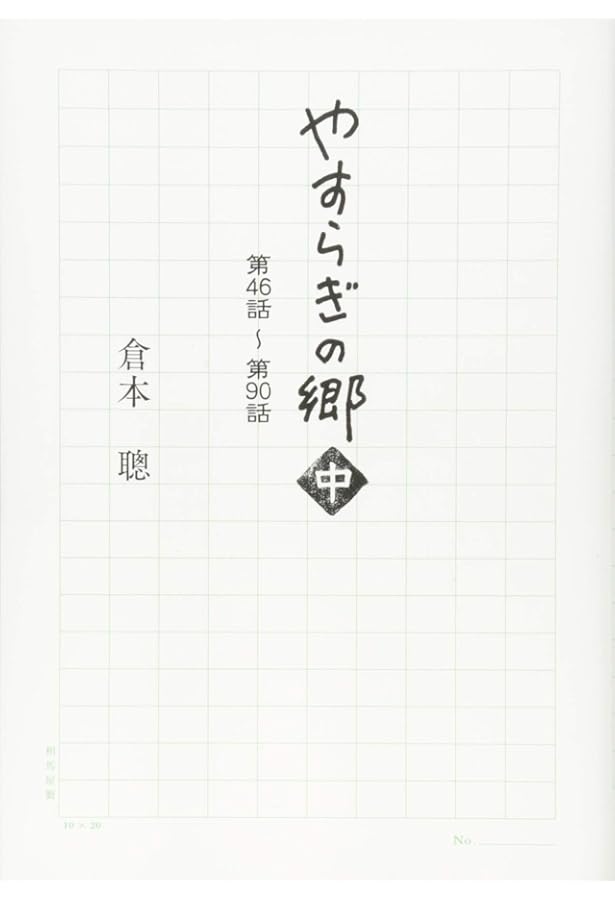 やすらぎの郷
中
第46話～第90話
倉本 聰
相馬屋製
10×20
No.